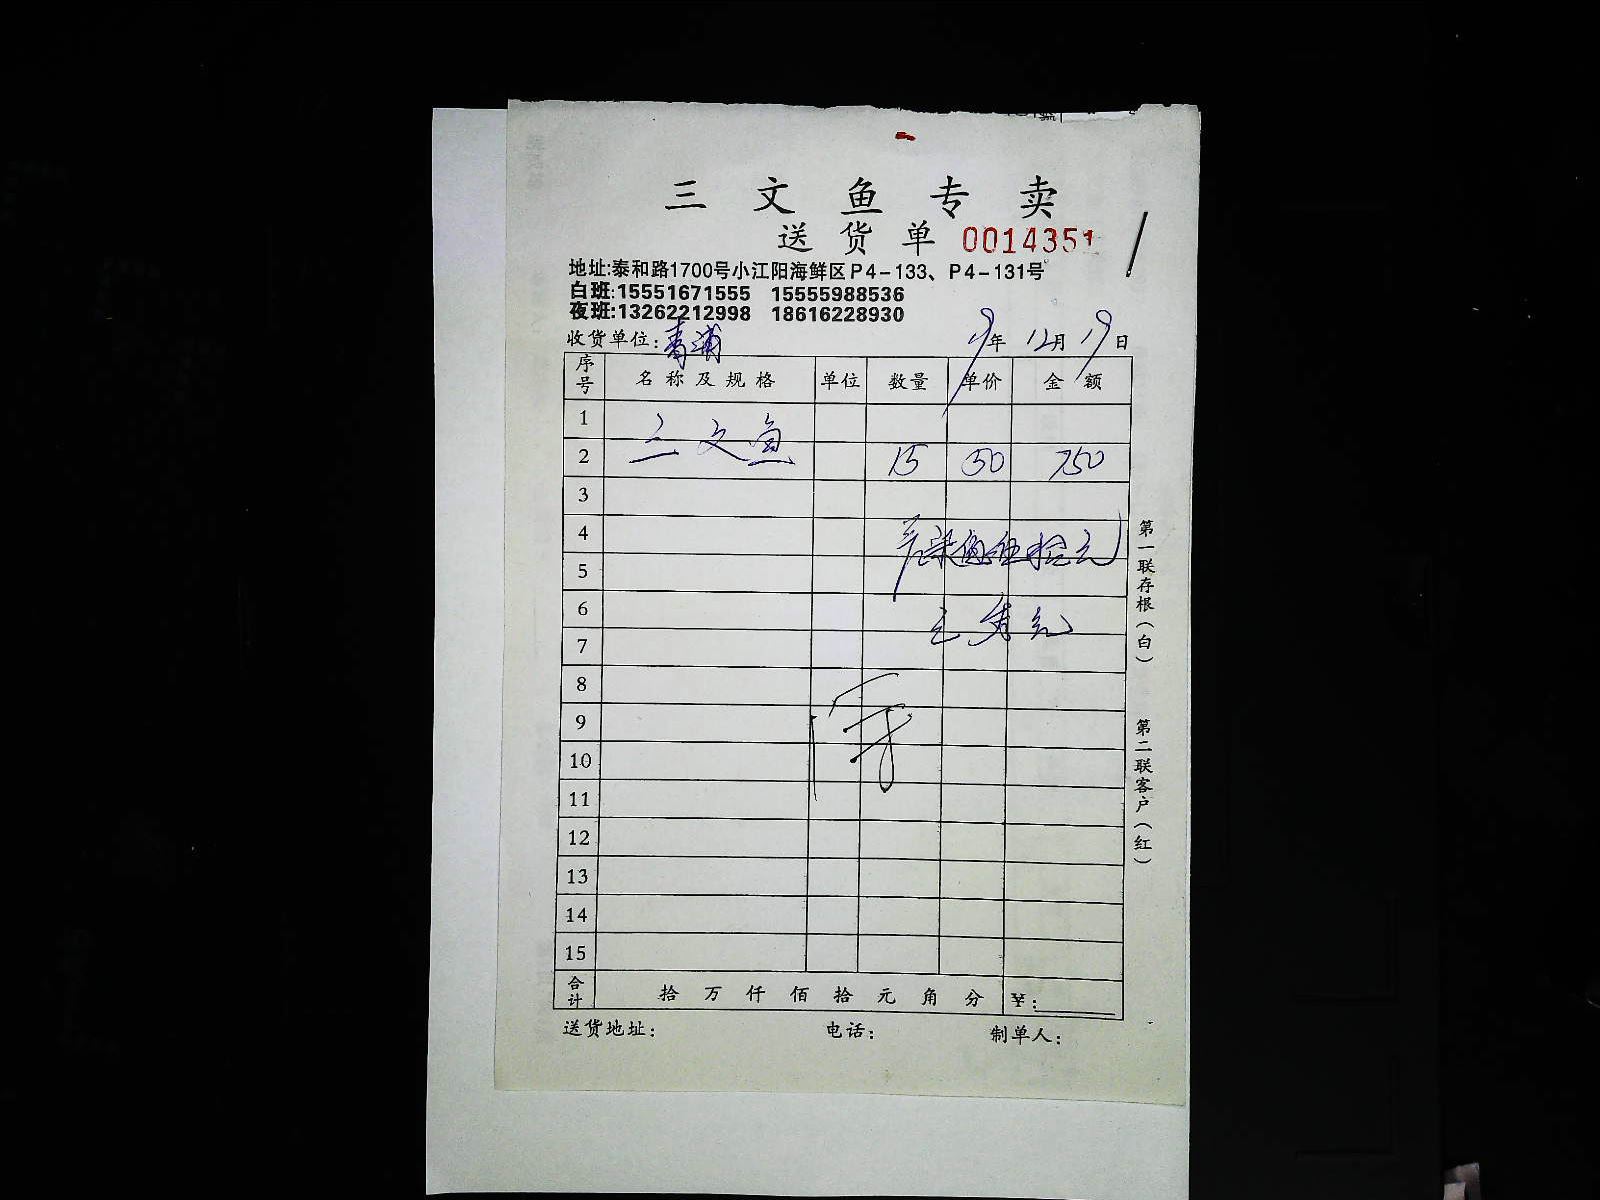 三文鱼专卖
送货单 0014351
地址:泰和路1700号小江阳海鲜区P4-133、P4-131号
白班:15551671555 15555988536
夜班:13262212998 18616228930
收货单位:青浦 19年12月19日
序号 名称及规格 单位 数量 单价 金额
1
2 三文鱼 15 50 750
3
4
5 柒佰伍拾元
6
7
8
9
10
11
12
13
14
15
合计 拾万仟佰拾元角分 ¥:
送货地址: 电话: 制单人:
第一联存根(白)
第二联客户(红)